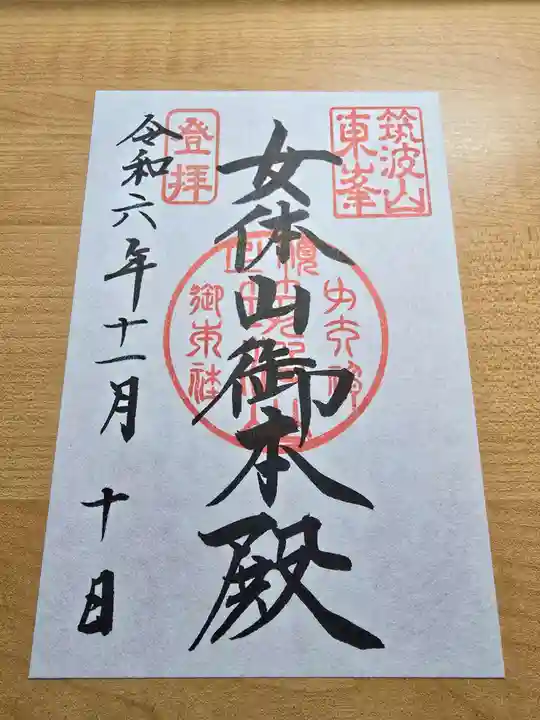 筑波山
東峯
女体山御本殿
登拝
令和六年十一月十日
御本社